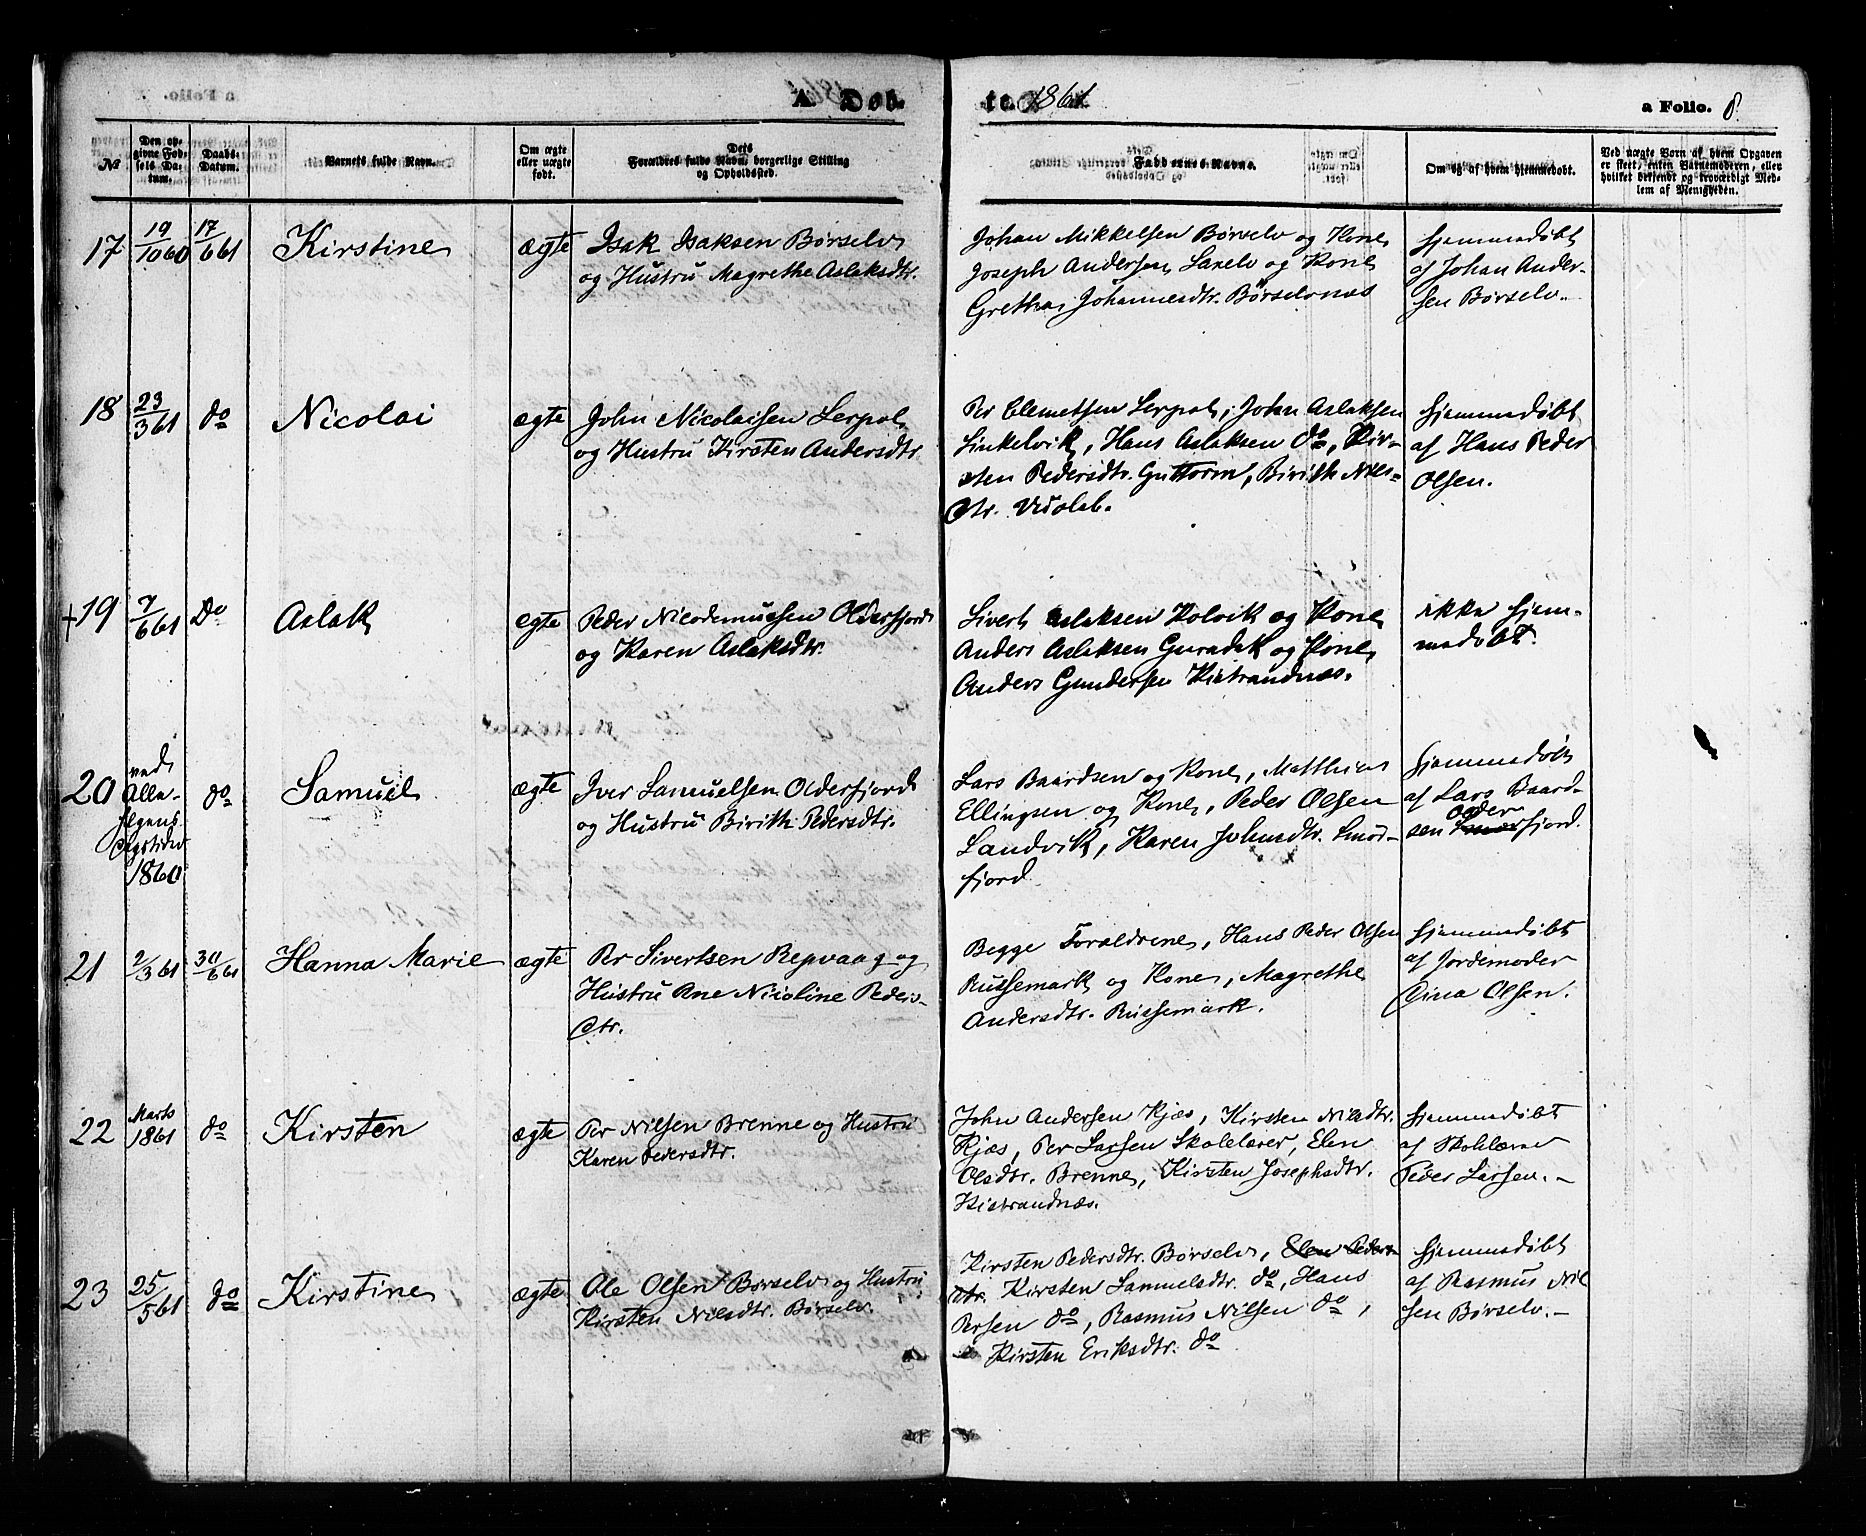 A. Døb-
te. 1861.
a Folio. 8.
№
Den op-
givne Fød-
sels Da-
tum.
Daabs-
Datum.
Barnets fulde Navn.
Om ægte
eller uægte
født.
Dets
Forældres fulde Navn, borgerlige Stilling
og Opholdssted.
Faddernes Navne.
Om og af hvem hjemmedøbt.
Ved uægte Børn af hvem Opgaven
er skeet, enten Barnemoderen, eller
hvilket bekjendt og troværdigt Med-
lem af Menigheden.
17
19/10 60
17/6 61
Kirstine
ægte
Isak Isaksen Børselv
og Hustru Magrethe Aslaksdtr.
Johan Mikkelsen Børselv og Kone,
Joseph Andersen Laxelv og Kone
Grethe Johannesdtr. Børselvnæs
hjemmedøbt
af Johan Ander-
sen Børselv.
18
23/3 61
do
Nicolai
ægte
John Nicolaisen Lerpol
og Hustru Kirsten Andersdtr.
Per Clemetsen Lerpol, John Aslaksen
Sinkelvik, Hans Aslaksen do, Kir-
sten Pedersdtr. Guttorm, Birith Niels-
dtr.
hjemmedøbt
af Hans Peder
Olsen.
+19
7/6 61
Do
Aslak
ægte
Peder Nicodemussen Olderfjord
og Karen Aslaksdtr.
Sivert Aslaksen Kolvik og Kone,
Anders Aslaksen og Kone,
Anders Gundersen Kistrandnæs.
ikke hjem-
medøbt.
20
ved
Alle-
helgens
dagstider
1860
do
Samuel
ægte
Iver Samuelsen Olderfjord
og Hustru Birith Pedersdtr.
Lars Baardsen og Kone, Matthias
Ellingsen og Kone, Peder Olsen
Sandvik, Karen Johnsdtr. Smør-
fjord.
hjemmedøbt
af Lars Baard-
sen Olderfjord.
21
2/3 61
30/6 61
Hanna Marie
ægte
Per Sivertsen Repvaag og
Hustru Ane Nicoline Peders-
dtr.
Begge Forældrene, Hans Peder Olsen
Russemark og Kone, Magrethe
Andersdtr. Russemark.
hjemmedøbt
af Jordemoder
Dina Olsen.
22
Marts
1861
do
Kirsten
ægte
Per Nilsen Brenne og Hustru
Karen Pedersdtr.
John Andersen Kjæs, Kirsten Nilsdtr.
Kjæs, Per Larsen Skolelærer, Elen
Olsdtr. Brenne, Kirsten Josephsdtr.
Kistrandnæs.
hjemmedøbt
af Skolelærer
Peder Larsen.
23
25/5 61
do
Kirstine
ægte
Ole Olsen Børselv og Hustru
Kirsten Nilsdtr. Børselv.
Kirsten Pedersdtr. Børselv, Elen Peders-
dtr. Kirsten Samuelsdtr. do, Hans
Persen do, Rasmus Nilsen do,
Kirsten Eriksdtr. do
hjemmedøbt
af Rasmus Nil-
sen Børselv.